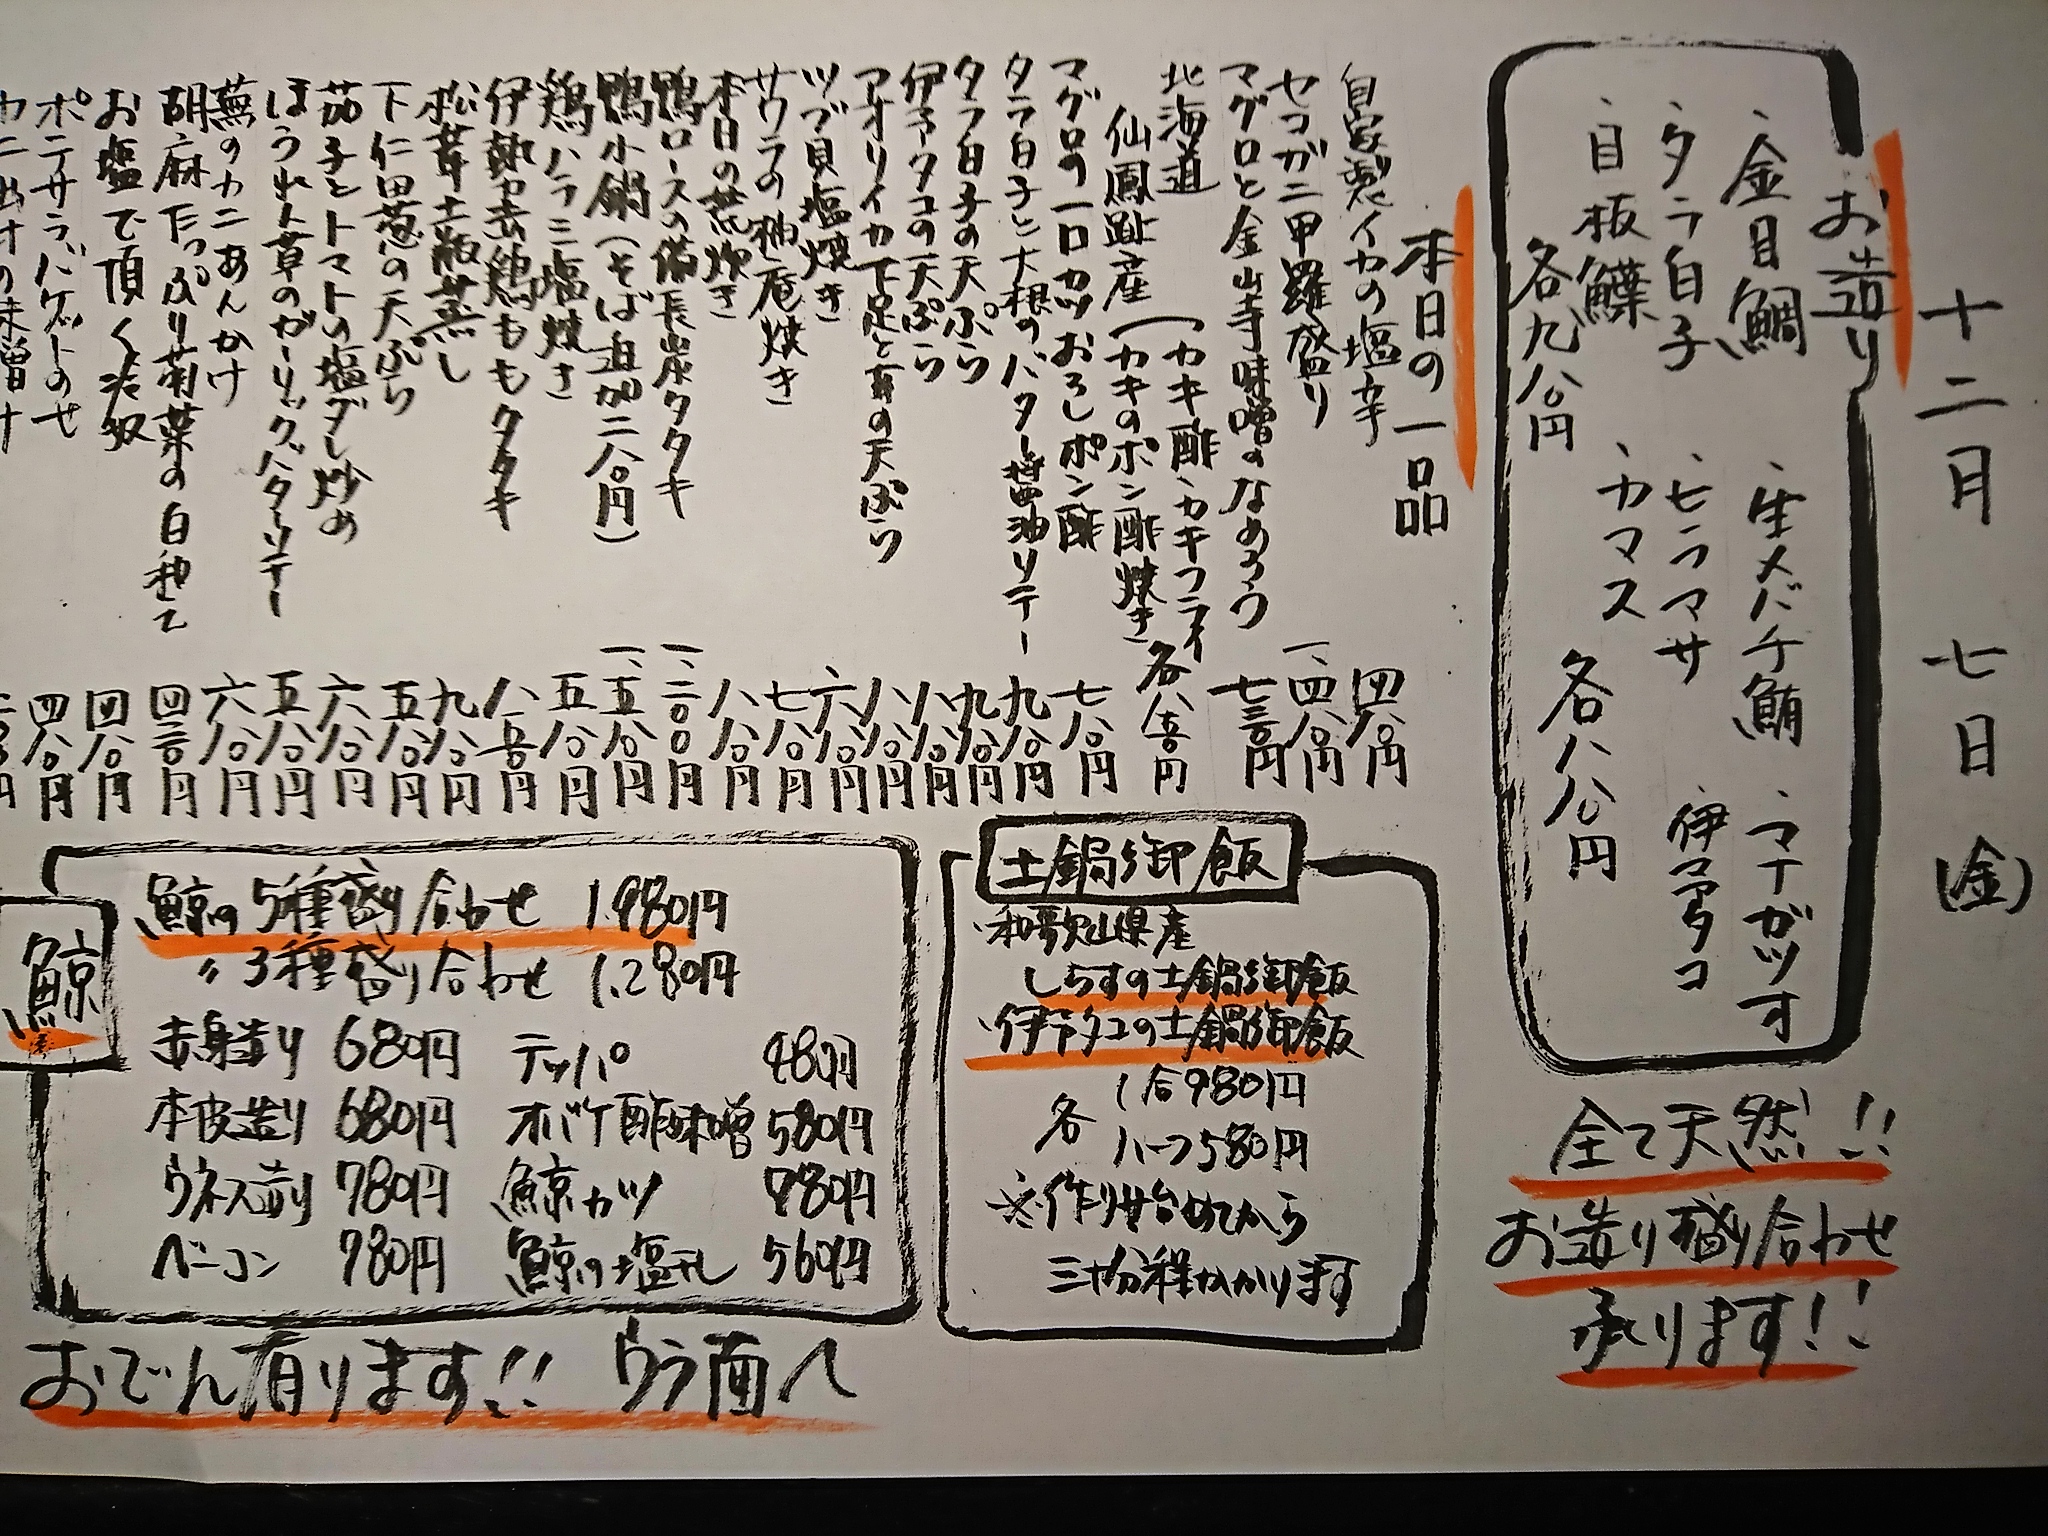 十二月 七日 (金)
お造り
・金目鯛 ・生メバチ鮪 ・マナガツオ
・タラ白子 ・ヒラマサ ・伊予タコ
・目板鰈 ・カマス
各九八〇円 各八八〇円
全て天然!!
お造り盛り合わせ
承ります!!
本日の一品
自家製イカの塩辛 四八〇円
セコガニ甲羅盛り 一、四八〇円
マグロと金山寺味噌のなめろう 七三〇円
北海道
仙鳳趾産 (カキ酢、カキフライ
(カキのポン酢焼き 各八五〇円
マグロの一口カツおろしポン酢 七八〇円
タラ白子と大根のバター醤油ソテー 九八〇円
タラ白子の天ぷら 九八〇円
伊予タコの天ぷら 八八〇円
アオリイカ下足と茸の天ぷら 八八〇円
ツブ貝塩焼き 六八〇円
サワラの柚庵焼き 七八〇円
本日の荒炊き 八八〇円
鴨ロースの備長炭タタキ 一、二〇〇円
鴨小鍋(そば追加二八〇円) 一、五八〇円
鶏ハラミ塩焼き 五八〇円
伊勢赤鶏ももタタキ 八五〇円
松茸土瓶蒸し 九八〇円
下仁田葱の天ぷら 五八〇円
茄子とトマトの塩ダレ炒め 六八〇円
ほうれん草のガーリックバターソテー 五八〇円
蕪のカニあんかけ 六八〇円
胡麻たっぷり菊菜の白和え 四三〇円
お塩で頂く冷奴 四八〇円
ポテサラバゲットのせ 四八〇円
土鍋御飯
・和歌山県産
しらすの土鍋御飯
・伊予タコの土鍋御飯
各 1合980円
ハーフ580円
※作り始めてから
三十分程かかります
鯨
鯨の5種盛り合わせ 1.980円
〃 3種盛り合わせ 1.280円
赤身造り 680円 テッパ 480円
本皮造り 680円 オバケ酢味噌 580円
ウネス造り 780円 鯨カツ 780円
ベーコン 780円 鯨の塩干し 560円
おでん有ります!! ウラ面へ